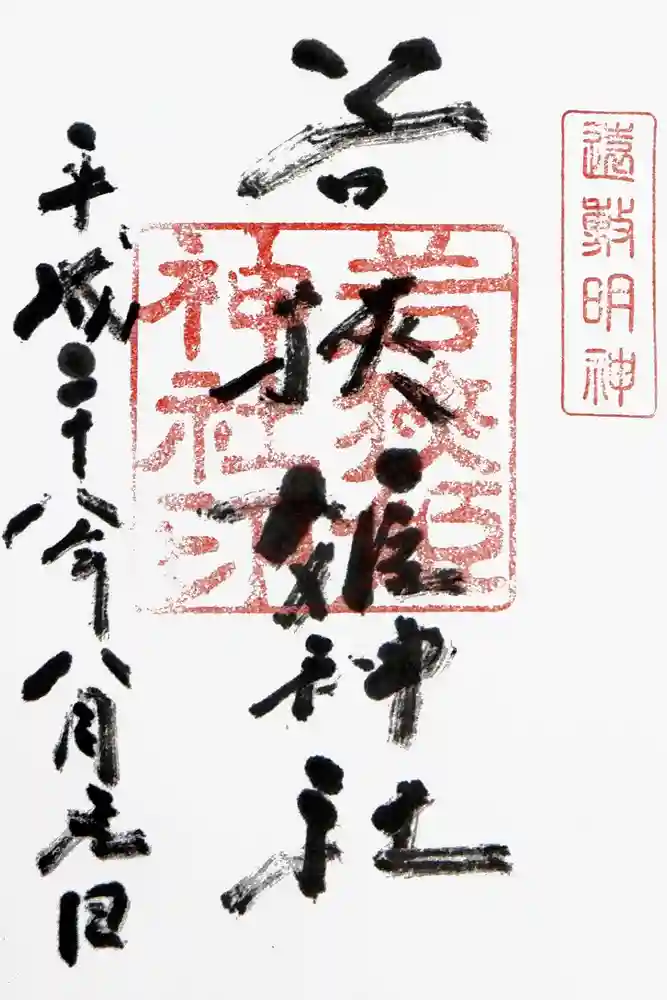 遠敷明神
若狭姫神社
若狭姫
神社印
平成二十八年八月日